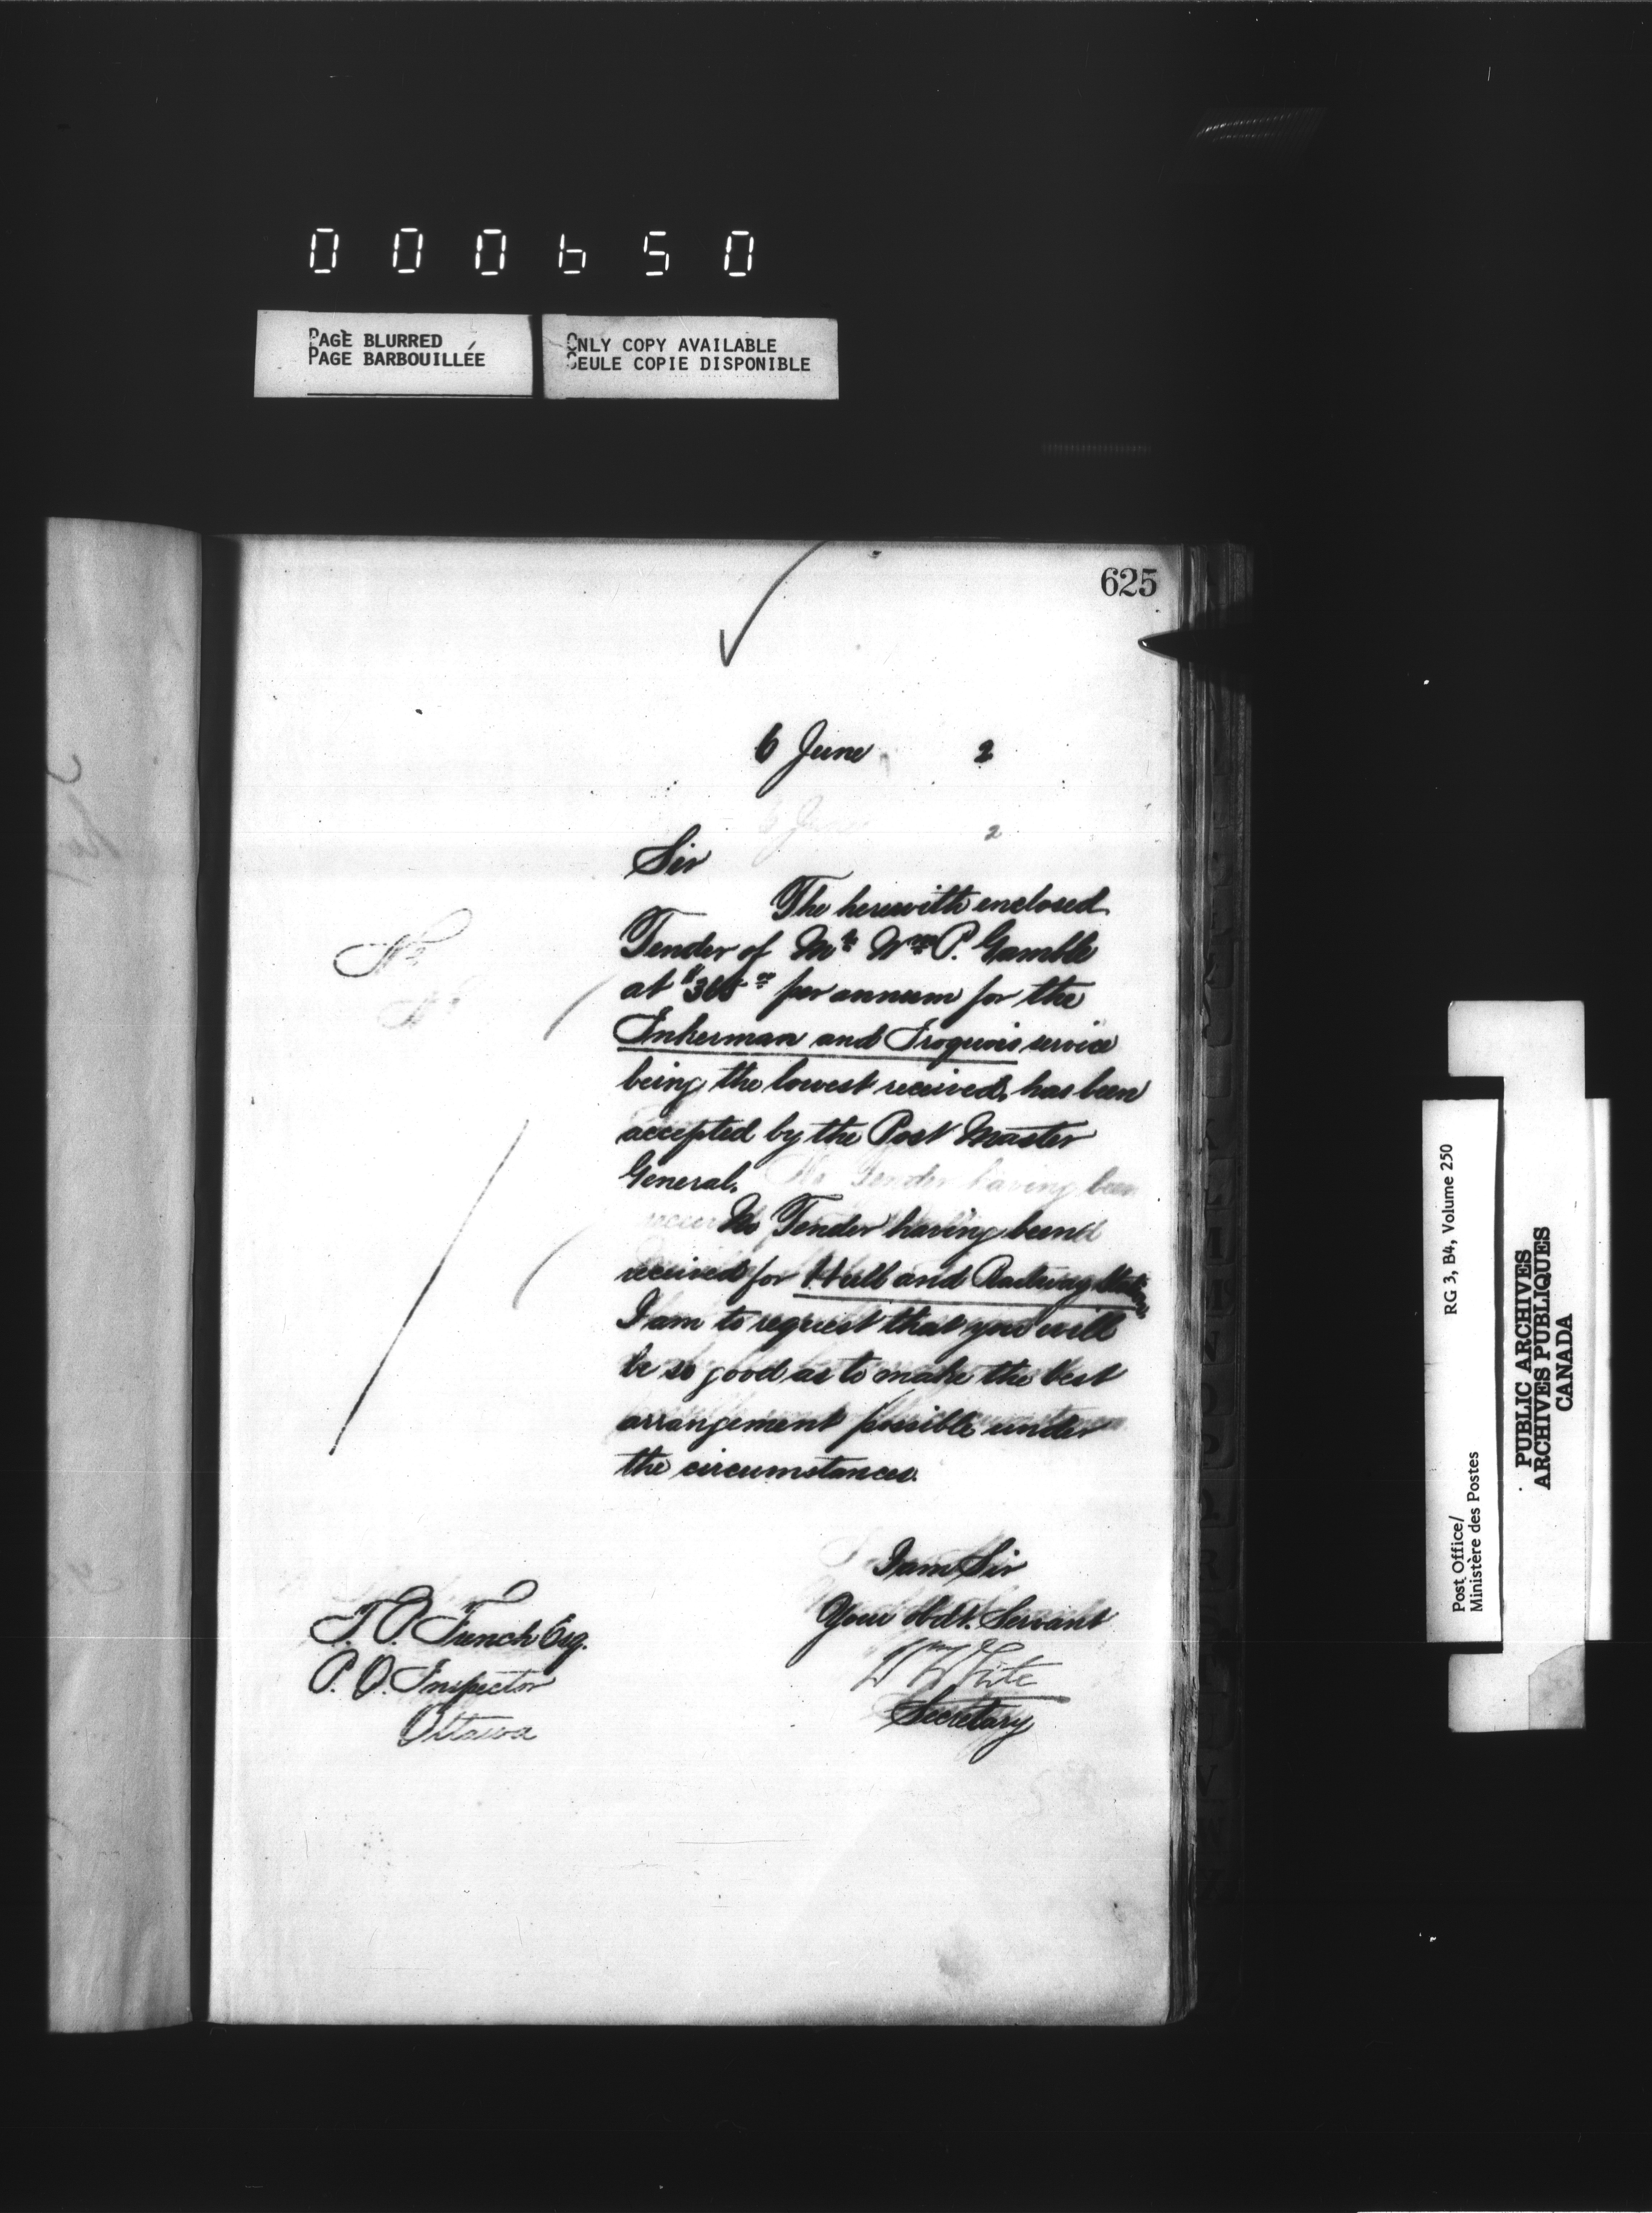 000650
PAGE BLURRED
PAGE BARBOUILLÉE
ONLY COPY AVAILABLE
SEULE COPIE DISPONIBLE
625
6 June 2
Sir
The herewith enclosed
Tender of Mr Wm P. Gamble
at $ per annum for the
Inkerman and Iroquois service
being the lowest received, has been
accepted by the Post Master
General.
No Tender having been
received for Hull and Railway
I am to request that you will
be so good as to make the best
arrangement possible under
the circumstances.
I am Sir
Your Obdt. Servant
Wm White
Secretary
T. P. French Esq.
P. O. Inspector
Ottawa
RG 3, B4, Volume 250
Post Office/
Ministère des Postes
PUBLIC ARCHIVES
ARCHIVES PUBLIQUES
CANADA